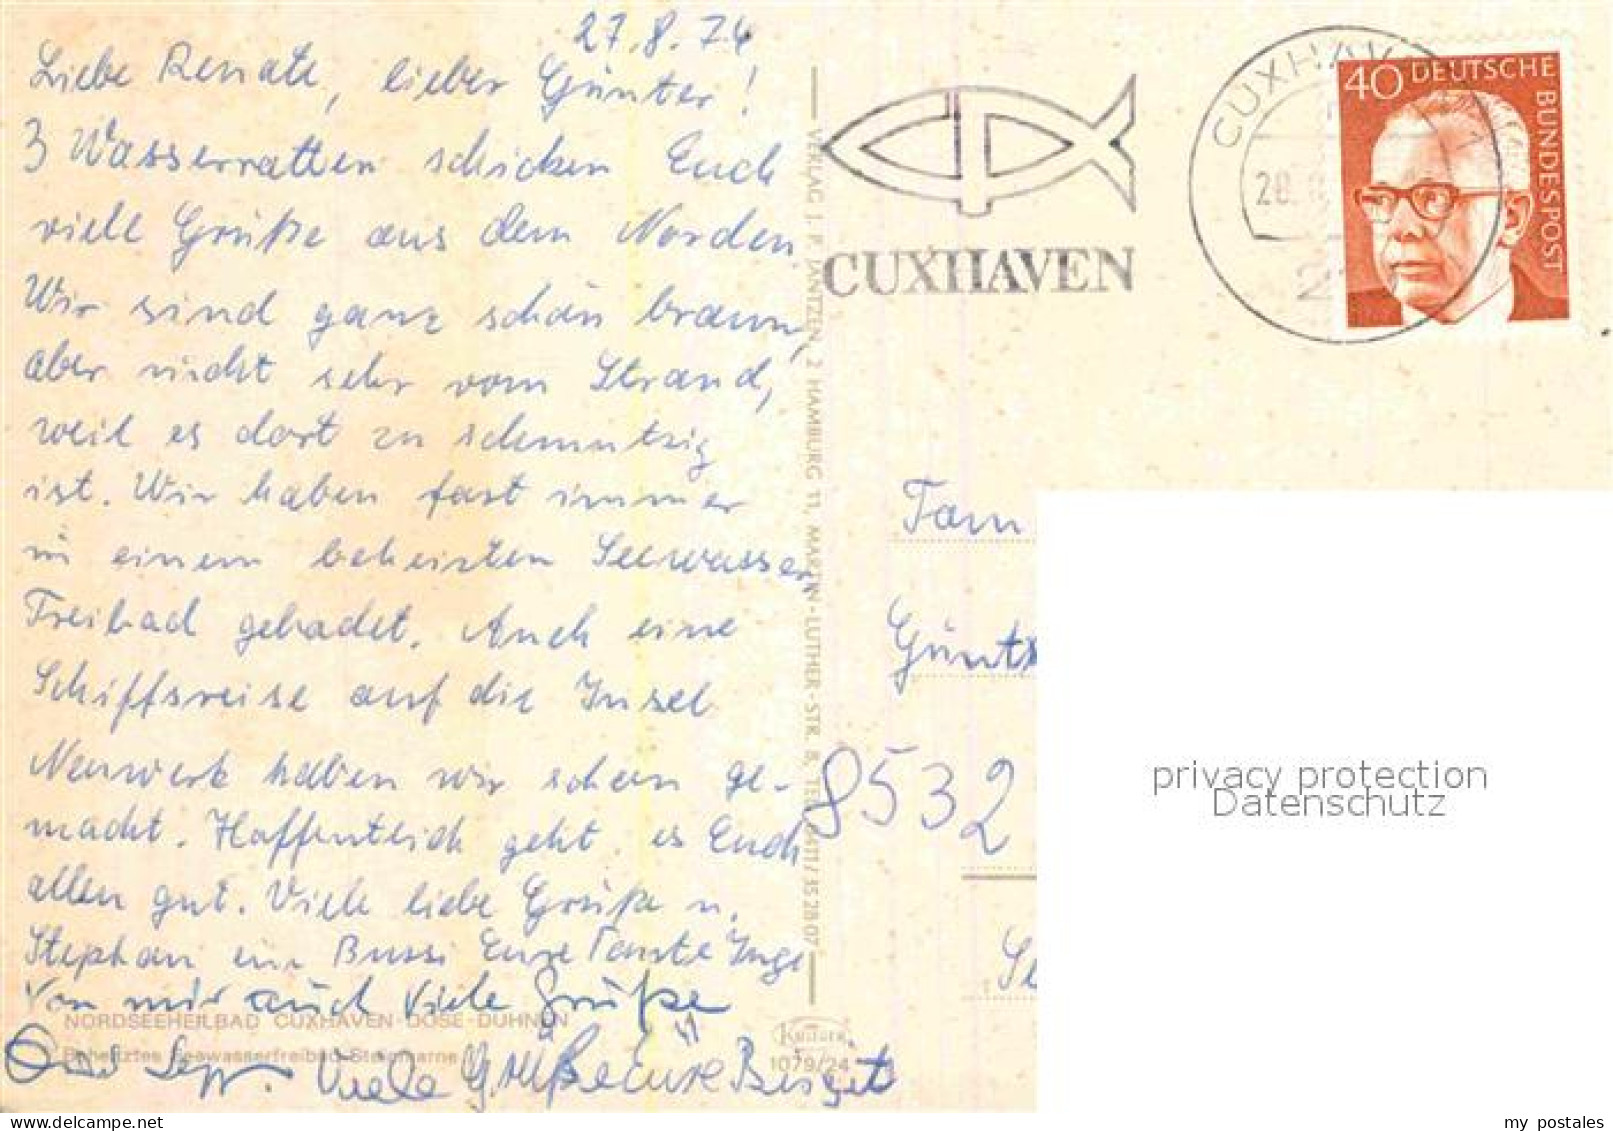 27.8.74
Liebe Renate, lieber Günter!
3 Wasserratten schicken Euch
viele Grüße aus dem Norden
Wir sind ganz schön braun,
aber nicht sehr vom Strand,
weil es dort zu schmutzig
ist. Wir haben fast immer
in einem beheizten Seewasser
Freibad gebadet. Auch eine
Schiffsreise auf die Insel
Neuwerk haben wir schon ge-
macht. Hoffentlich geht es Euch
allen gut. Viele liebe Grüße u.
Stephan ein Bussi Eure Tante Inge
Von mir auch viele Grüße
Onkel Sepp. Viele Grüße Eure Birgit
NORDSEEHEILBAD CUXHAVEN-DÖSE-DUHNEN
Beheiztes Seewasserfreibad Steinmarne
VERLAG J. P. JANTZEN, 2 HAMBURG 11, MARTIN-LUTHER-STR. 8, TEL. 0411/35 28 07
Krüger
1079/24
CUXHAVEN
CUXHAVEN
28.8
2
40 DEUTSCHE
BUNDESPOST
Fam
Günt
8532
privacy protection
Datenschutz
my postales